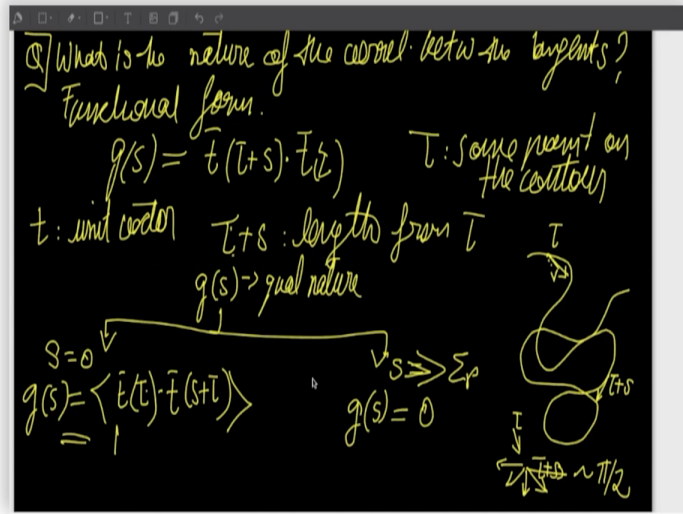 Q] What is the nature of the correl. betw the tangents?
Functional form.
g(s) = t̄(τ+s)·t̄(τ)
τ: some point on
the contour
t: unit vector
τ+s: length from τ
g(s) → qual nature
s=0
g(s) = ⟨t̄(τ)·t̄(s+τ)⟩
= 1
s ⋙ ξp
g(s) = 0
τ
τ+s
τ
τ+s ~ π/2